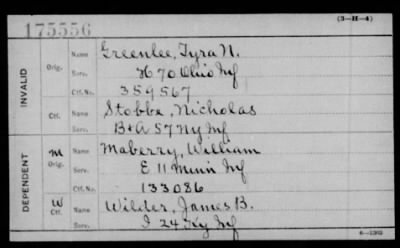 175556
(3-H-4)
INVALID
Orig. Name Greenlee, Tyra N.
Serv. H 70 Ohio Inf
Ctf. No. 359567
Ctf. Name Stobbe, Nicholas
Serv. B+A 57 Ny Inf
DEPENDENT
M Orig. Name Maberry, William
Serv. E 11 Minn Inf
Ctf. No. 133086
W Ctf. Name Wilder, James B.
Serv. I 24 Ky Inf